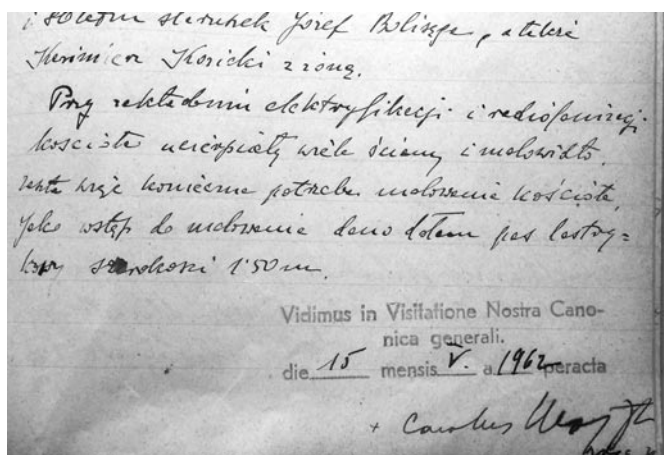 i sołtem szacunek Józef Bolisęga, a także
Kazimierz Kosicki z żoną.
Przy zakładaniu elektryfikacji i radiofonizacji
kościoła ucierpiały wiele ściany i malowidło
więc konieczna potrzeba malowania kościoła,
jako wstęp do malowania dano dołem pas lastry=
kowy szerokości 1'50 m.
Vidimus in Visitatione Nostra Cano-
nica generali.
die 15 mensis V. a 1962 peracta
+ Carolus